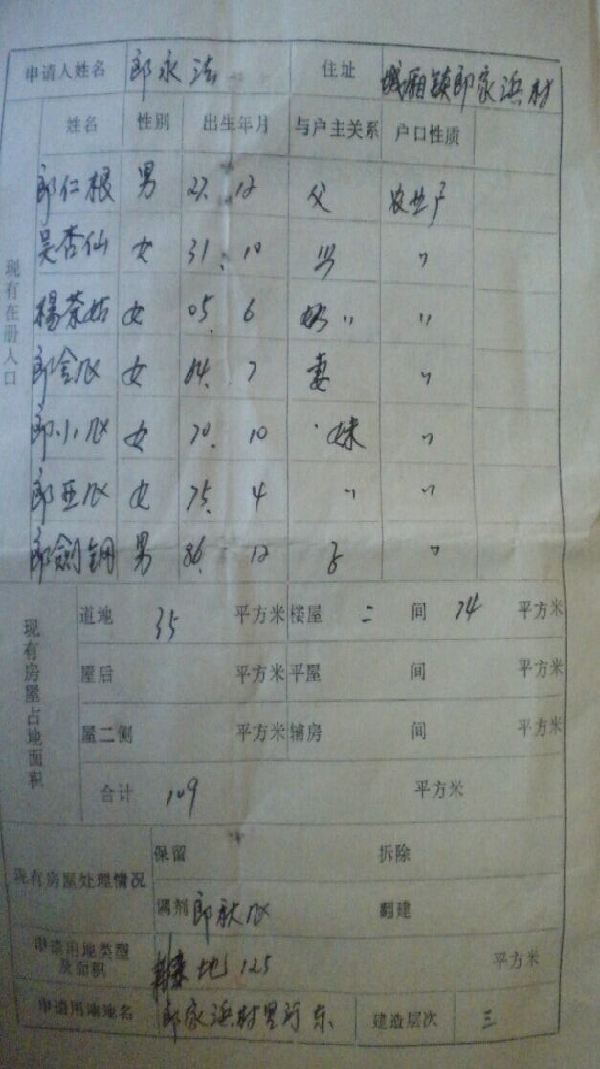 申请人姓名 郎永法 住址 城厢镇郎家浜村
姓名 性别 出生年月 与户主关系 户口性质
现有在册人口
郎仁根 男 27. 12 父 农业户
吴杏仙 女 31. 10 〃
楊茶姑 女 05. 6 奶〃 〃
郎金凤 女 64. 7 妻 〃
郎小凤 女 70. 10 妹 〃
郎亚凤 女 75. 4 〃 〃
郎劍钢 男 86. 12 子 〃
现有房屋占地面积
道地 35 平方米 楼屋 二 间 74 平方米
屋后 平方米 平屋 间 平方米
屋二侧 平方米 辅房 间 平方米
合计 109 平方米
现有房屋处理情况
保留 拆除
调剂 郎秋凤 翻建
申请用地类型及面积 地 125 平方米
申请用地地名 郎家浜村里河东 建造层次 三